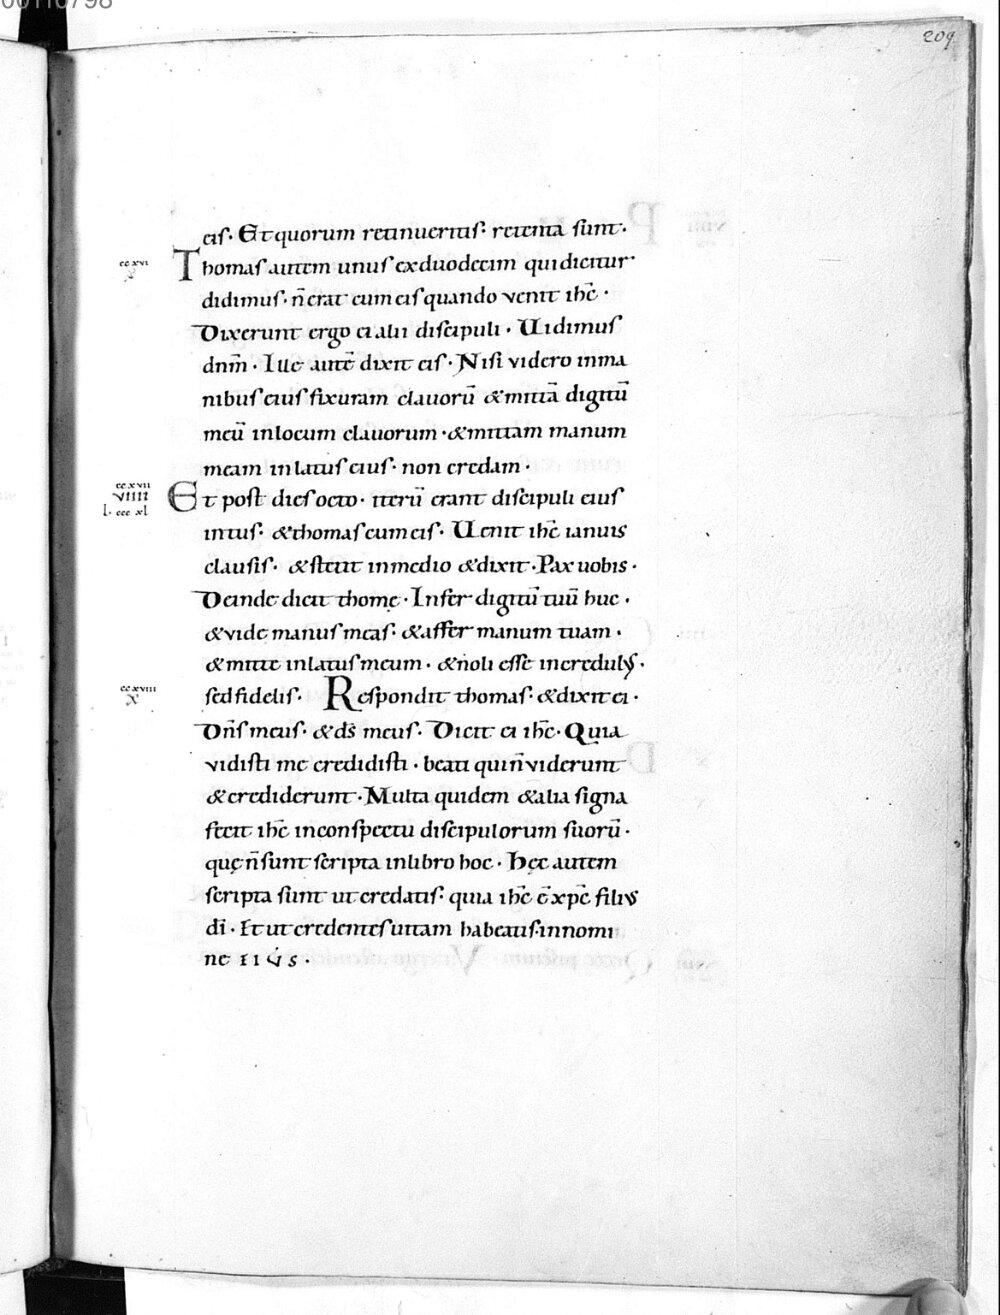 00110798
209
eis· Et quorum retinueritis· retenta sunt·
ccxvi
Thomas autem unus ex duodecim qui dicitur
didimus· n̄ erat cum eis quando venit ihc̄·
Dixerunt ergo ei alii discipuli· Uidimus
dnm̄· Ille autē dixit eis· Nisi videro inma
nibus eius fixuram clavorū &mittā digitū
meū inlocum clavorum·&mittam manum
meam in latus eius· non credam·
ccxvii
viiii
l· ccc xl
Et post dies octo· iterū erant discipuli eius
intus· &thomas cum eis· Uenit ihc̄ ianuis
clausis· &stetit inmedio &dixit·Pax uobis·
Deinde dicit thomę·Infer digitū tuū huc·
&vide manus meas· &affer manum tuam·
&mitte inlatus meum· &noli esse incredulus·
ccxviii
x
sed fidelis· Respondit thomas· &dixit ei·
Dn̄s meus· &ds̄ meus· Dicit ei ihc̄·Quia
vidisti me credidisti· beati qui n̄ viderunt
&crediderunt·Multa quidem &alia signa
fecit ihc̄ inconspectu discipulorum suorū·
quę n̄ sunt scripta inlibro hoc· Hęc autem
scripta sunt ut credatis· quia ihc̄ ē xpc̄ filius
dī· Et ut credentes uitam habeatis·innomi
ne eius·